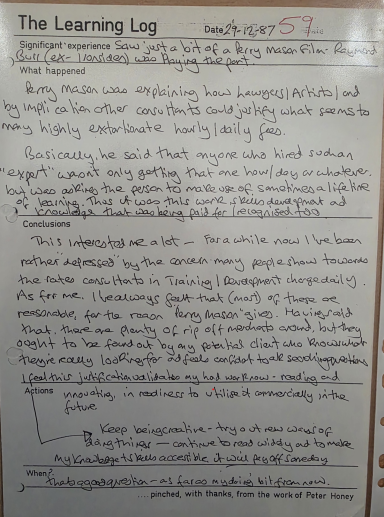 The Learning Log
Date 29-12-87 59
Significant experience Saw just a bit of a Perry Mason Film - Raymond
Burr (ex-Ironside) was Playing the part.
What happened
Perry Mason was explaining how Lawyers/Artists/and
by implication other consultants could justify what seems to
many highly extortionate hourly/daily fees.
Basically, he said that anyone who hired such an
"expert" wasn't only getting that one hour/day or whatever.
but was asking the person to make use of sometimes a lifetime
of learning. Thus it was this work, skills development and
knowledge that was being paid for/recognised too
Conclusions
This interested me a lot - For a while now I've been
rather depressed by the concern many people show towards
the rates consultants in Training/Development charge daily.
As for me, I've always felt that (most) of these are
reasonable, for the reason 'Perry Mason' gives. Having said
that, there are plenty of rip off merchants around, but they
ought to be found out by any potential client who knows what
they're really looking for and feels confident to ask searching questions
I feel this justification validates my hard work - reading and
Actions innovating, in readiness to utilise it commercially in the
future
Keep being creative - try out new ways of
doing things - continue to read widely and to make
my knowledge & skills accessible. It will pay off someday
When?
that's a good question - as far as my doing bit from now.
....pinched, with thanks, from the work of Peter Honey